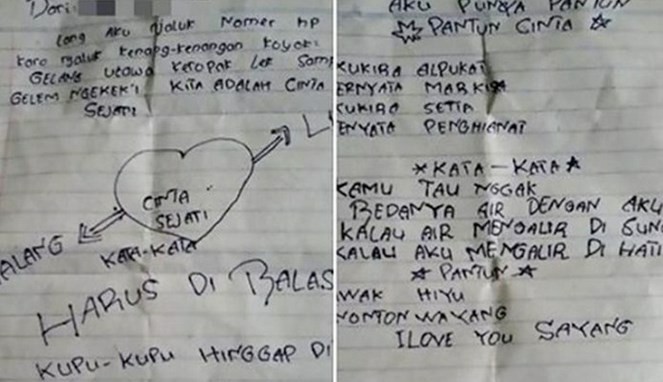 Dari:
AKU NJALUK NOMER HP
KARO NJALUK KENANG-KENANGAN KOYOK:
GELANG UTOWO
GELEM NGEKEK'I KITA ADALAH CINTA
SEJATI
CINTA
SEJATI
KATA-KATA
HARUS DI BALAS
KUPU-KUPU HINGGAP DI
AKU PUNYA PANTUN
PANTUN CINTA
KUKIRA ALPUKAT
ERNYATA MARKISA
KUKIRA SETIA
ENYATA PENGHIANAT
*KATA-KATA*
KAMU TAU NGGAK
BEDANYA AIR DENGAN AKU
KALAU AIR MENGALIR DI SUN
KALAU AKU MENGALIR DI HATI
*PANTUN*
WAK HIYU
NONTON WAYANG
I LOVE YOU SAYANG